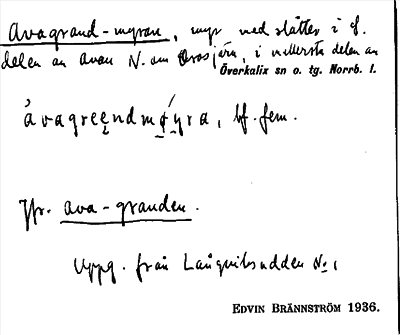 Avagrand-myran, myr med slåtter i ö.
delen av avan N. om Orrsjärn, i mellersta delen av
Överkalix sn o. tg. Norrb. l.
ávagreęndmýra, bf. fem.
Jfr. ava-granden.
Uppg. från Långviksudden N:o 1
EDVIN BRÄNNSTRÖM 1936.